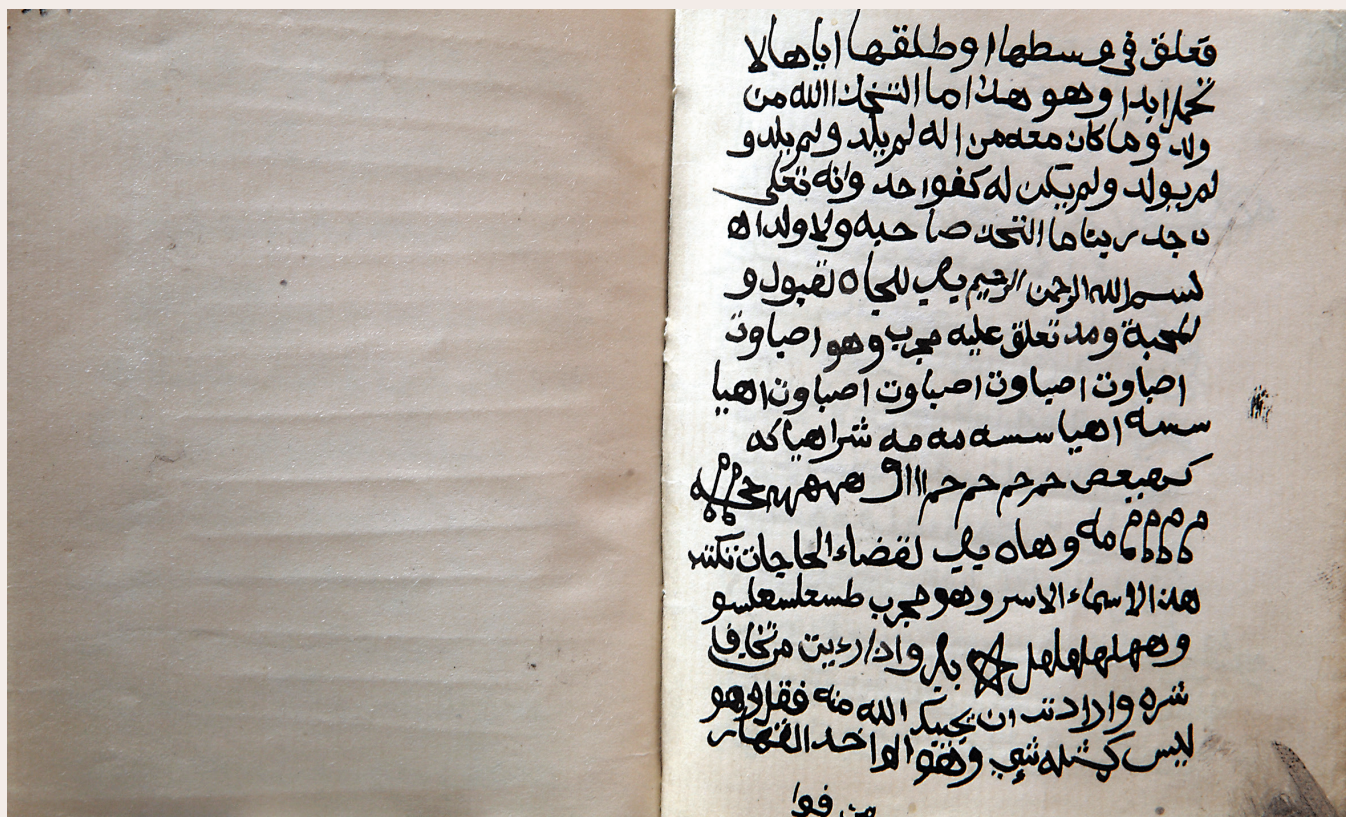 فتعلق في وسطها اوطلقها اياها لا
تحمل ابدا وهو هذا ما اتخذ الله من
ولد وما كان معه من اله لم يلد ولم يلد و
لم يولد ولم يكن له كفوا حد وانه تعلى
جد ربنا ما التخذ صاحبه ولا ولدا ه
بسم الله الرحمن الرحيم باب للجاه لقبول و
لمحبة ومد تعلق عليه مجرب وهو اصباوت
اصباوت اصباوت اصباوت اصباوت اهيا
سسه اهيا سسه مه مه شرا هيا كه
كهيعص حم حم حم حم ااا
مه وهاه باب لقضاء الحاجات تكتب
هذ الاسماء الاسر وهو مجرب
باب واذا رءيت من تخاف
شره واردت ان ينجيك الله منه فقل وهو
ليس كمثله شيء وهو الواحد القهار
من فوا